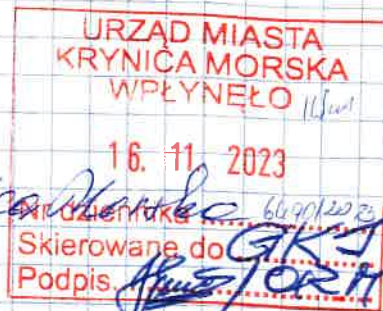 URZĄD MIASTA
KRYNICA MORSKA
WPŁYNĘŁO
16. 11. 2023
Nr dziennika 6490/2023
Skierowane do GKJ
Podpis ORM